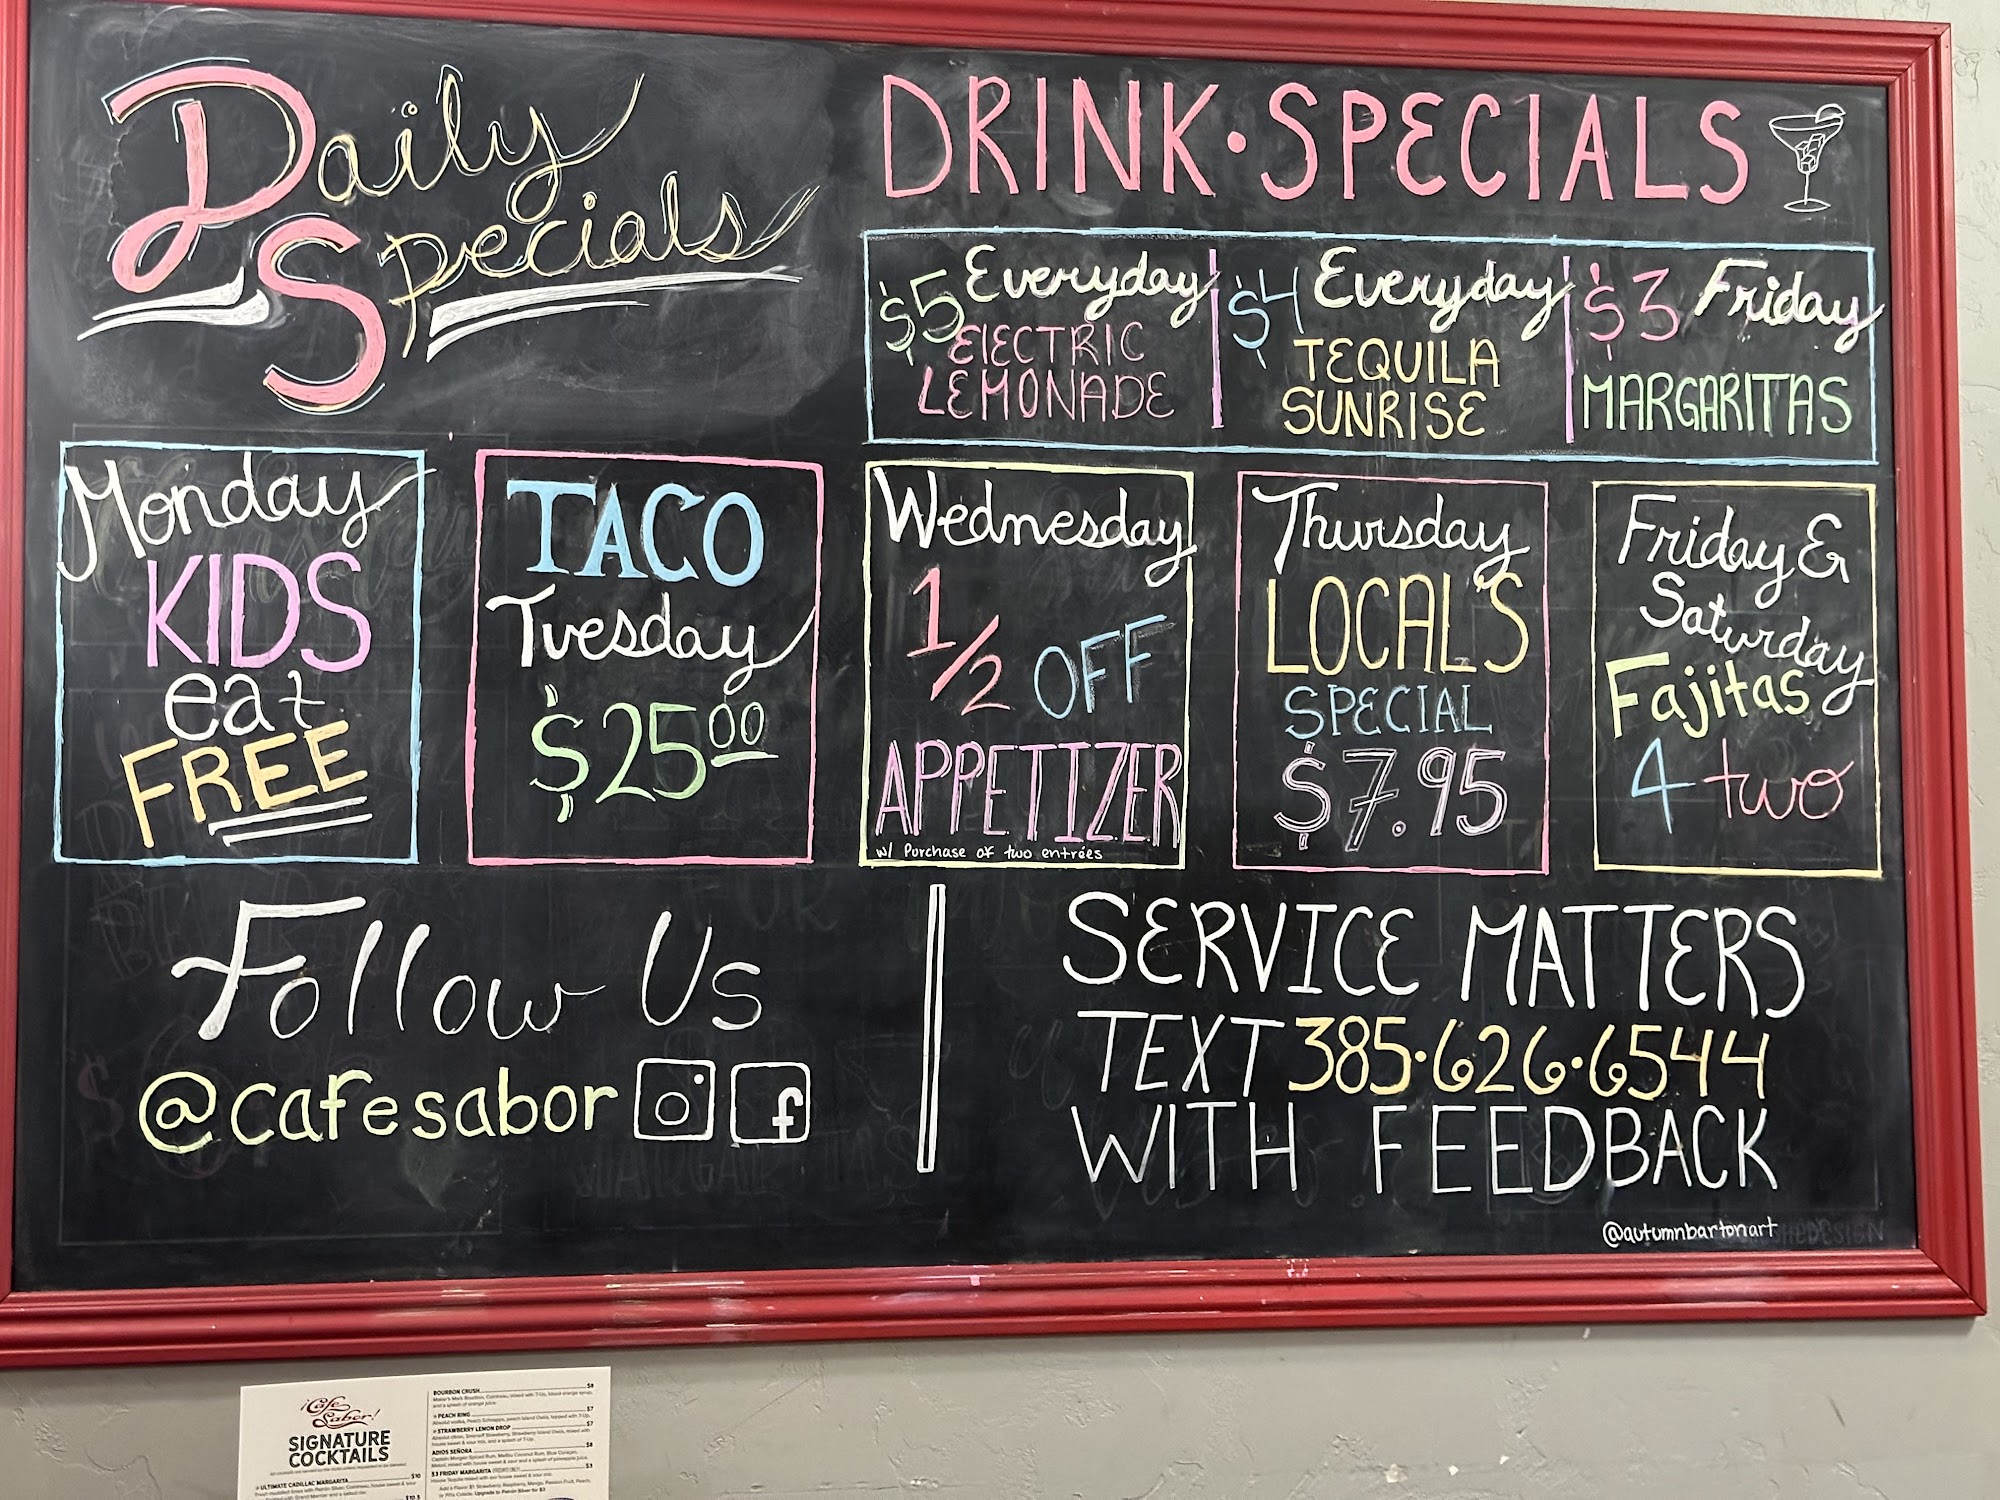 Daily
Specials
DRINK · SPECIALS
$5 Everyday
ELECTRIC
LEMONADE
$4 Everyday
TEQUILA
SUNRISE
$3 Friday
MARGARITAS
Monday
KIDS
eat
FREE
TACO
Tuesday
$25.00
Wednesday
1/2 OFF
APPETIZER
w/ Purchase of two entrées
Thursday
LOCAL'S
SPECIAL
$7.95
Friday &
Saturday
Fajitas
4 two
Follow Us
@cafesabor
SERVICE MATTERS
TEXT 385·626·6544
WITH FEEDBACK
@autumnbartonart
¡Cafe
Sabor!
SIGNATURE
COCKTAILS
ULTIMATE CADILLAC MARGARITA $10
BOURBON CRUSH $8
and a splash of orange juice.
PEACH RING $7
STRAWBERRY LEMON DROP $7
house sweet & sour mix, and a splash of 7-Up.
ADIOS SEÑORA $8
$3 FRIDAY MARGARITA $3